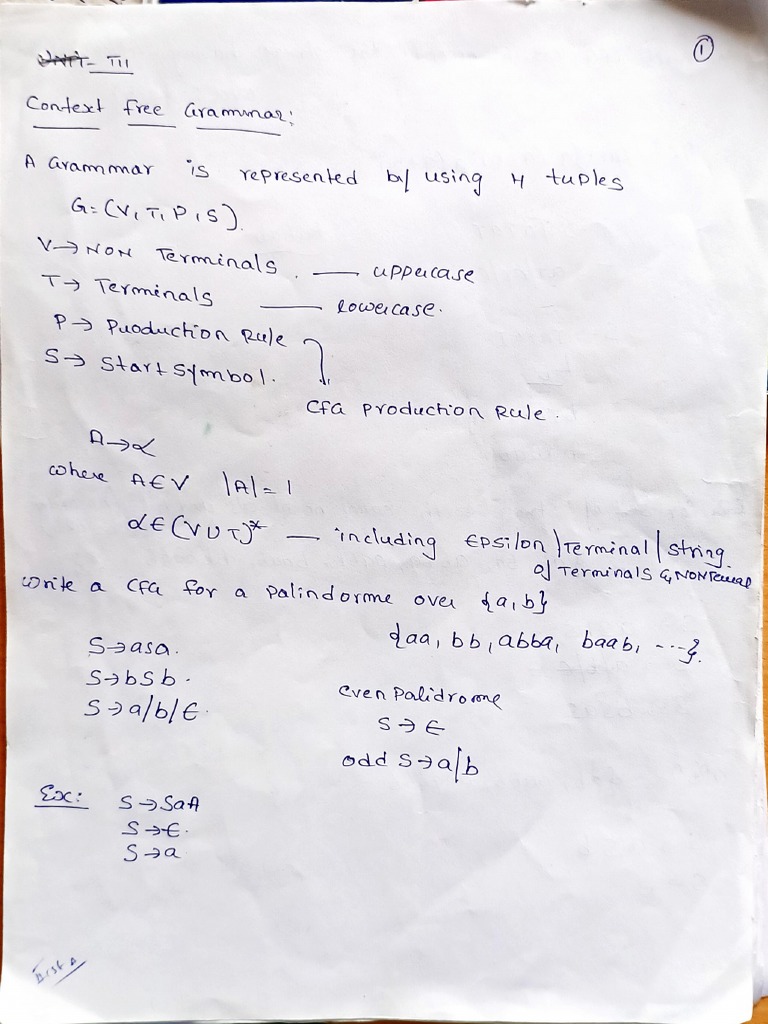 ①
UNIT - III
Context free Grammar:
A Grammar is represented by using 4 tuples
G=(V,T,P,S).
V→NON Terminals. — uppercase
T→ Terminals — lowercase.
P→ Production Rule
S→ Start symbol.
CFG production Rule.
A→α
where A∈V |A|=1
α∈(V∪T)* — including Epsilon/Terminal/string
of Terminals & NON Terminal
write a CFG for a palindorme over {a,b}
{aa, bb, abba, baab, ---}.
S→asa.
S→bSb.
S→a/b/ϵ.
even palidrome
S→ϵ
odd S→a/b
Ex: S→SaA
S→ϵ.
S→a